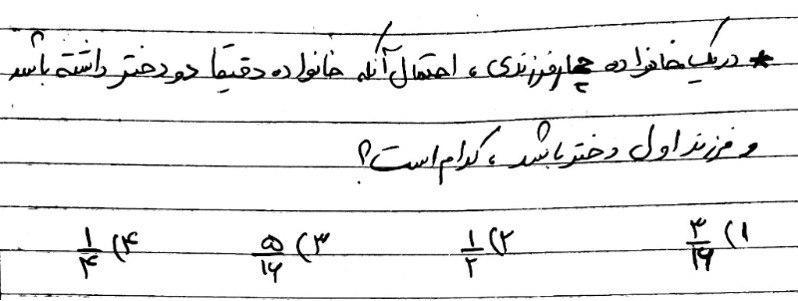 * در یک خانواده چهار فرزندی، احتمال آنکه خانواده دقیقا دو دختر داشته باشد
و فرزند اول دختر باشد، کدام است؟
۱) ۳/۱۶ ۲) ۱/۲ ۳) ۵/۱۶ ۴) ۱/۴